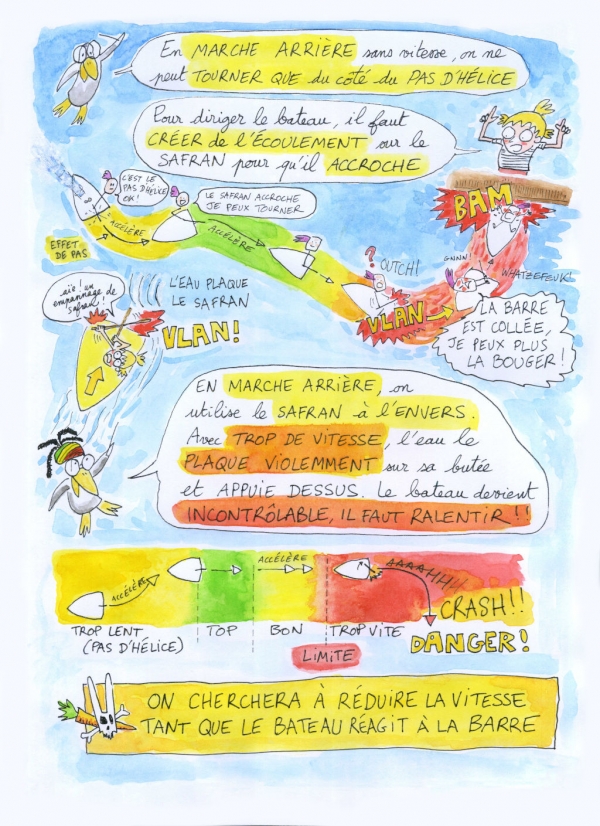 En MARCHE ARRIÈRE sans vitesse, on ne
peut TOURNER QUE du côté du PAS D'HÉLICE
Pour diriger le bateau, il faut
CRÉER de l'ÉCOULEMENT sur le
SAFRAN pour qu'il ACCROCHE
C'EST LE
PAS D'HÉLICE
OK!
LE SAFRAN ACCROCHE
JE PEUX TOURNER
ACCÉLÈRE
ACCÉLÈRE
EFFET
DE PAS
BAM
GNNN!
WHATZEFEUK!
? OUTCH!
VLAN
LA BARRE
EST COLLÉE,
JE PEUX PLUS
LA BOUGER!
aïe! un
empannage de
safran!
L'EAU PLAQUE
LE SAFRAN
VLAN!
EN MARCHE ARRIÈRE, on
utilise le SAFRAN à L'ENVERS.
Avec TROP DE VITESSE, l'eau le
PLAQUE VIOLEMMENT sur sa butée
et APPUIE DESSUS. Le bateau devient
INCONTRÔLABLE, IL FAUT RALENTIR!!
ACCÉLÈRE
ACCÉLÈRE
AAAAHH!!
CRASH!!
TROP LENT
(PAS D'HÉLICE)
TOP
BON
TROP VITE
DANGER!
LIMITE
ON CHERCHERA À RÉDUIRE LA VITESSE
TANT QUE LE BATEAU RÉAGIT À LA BARRE